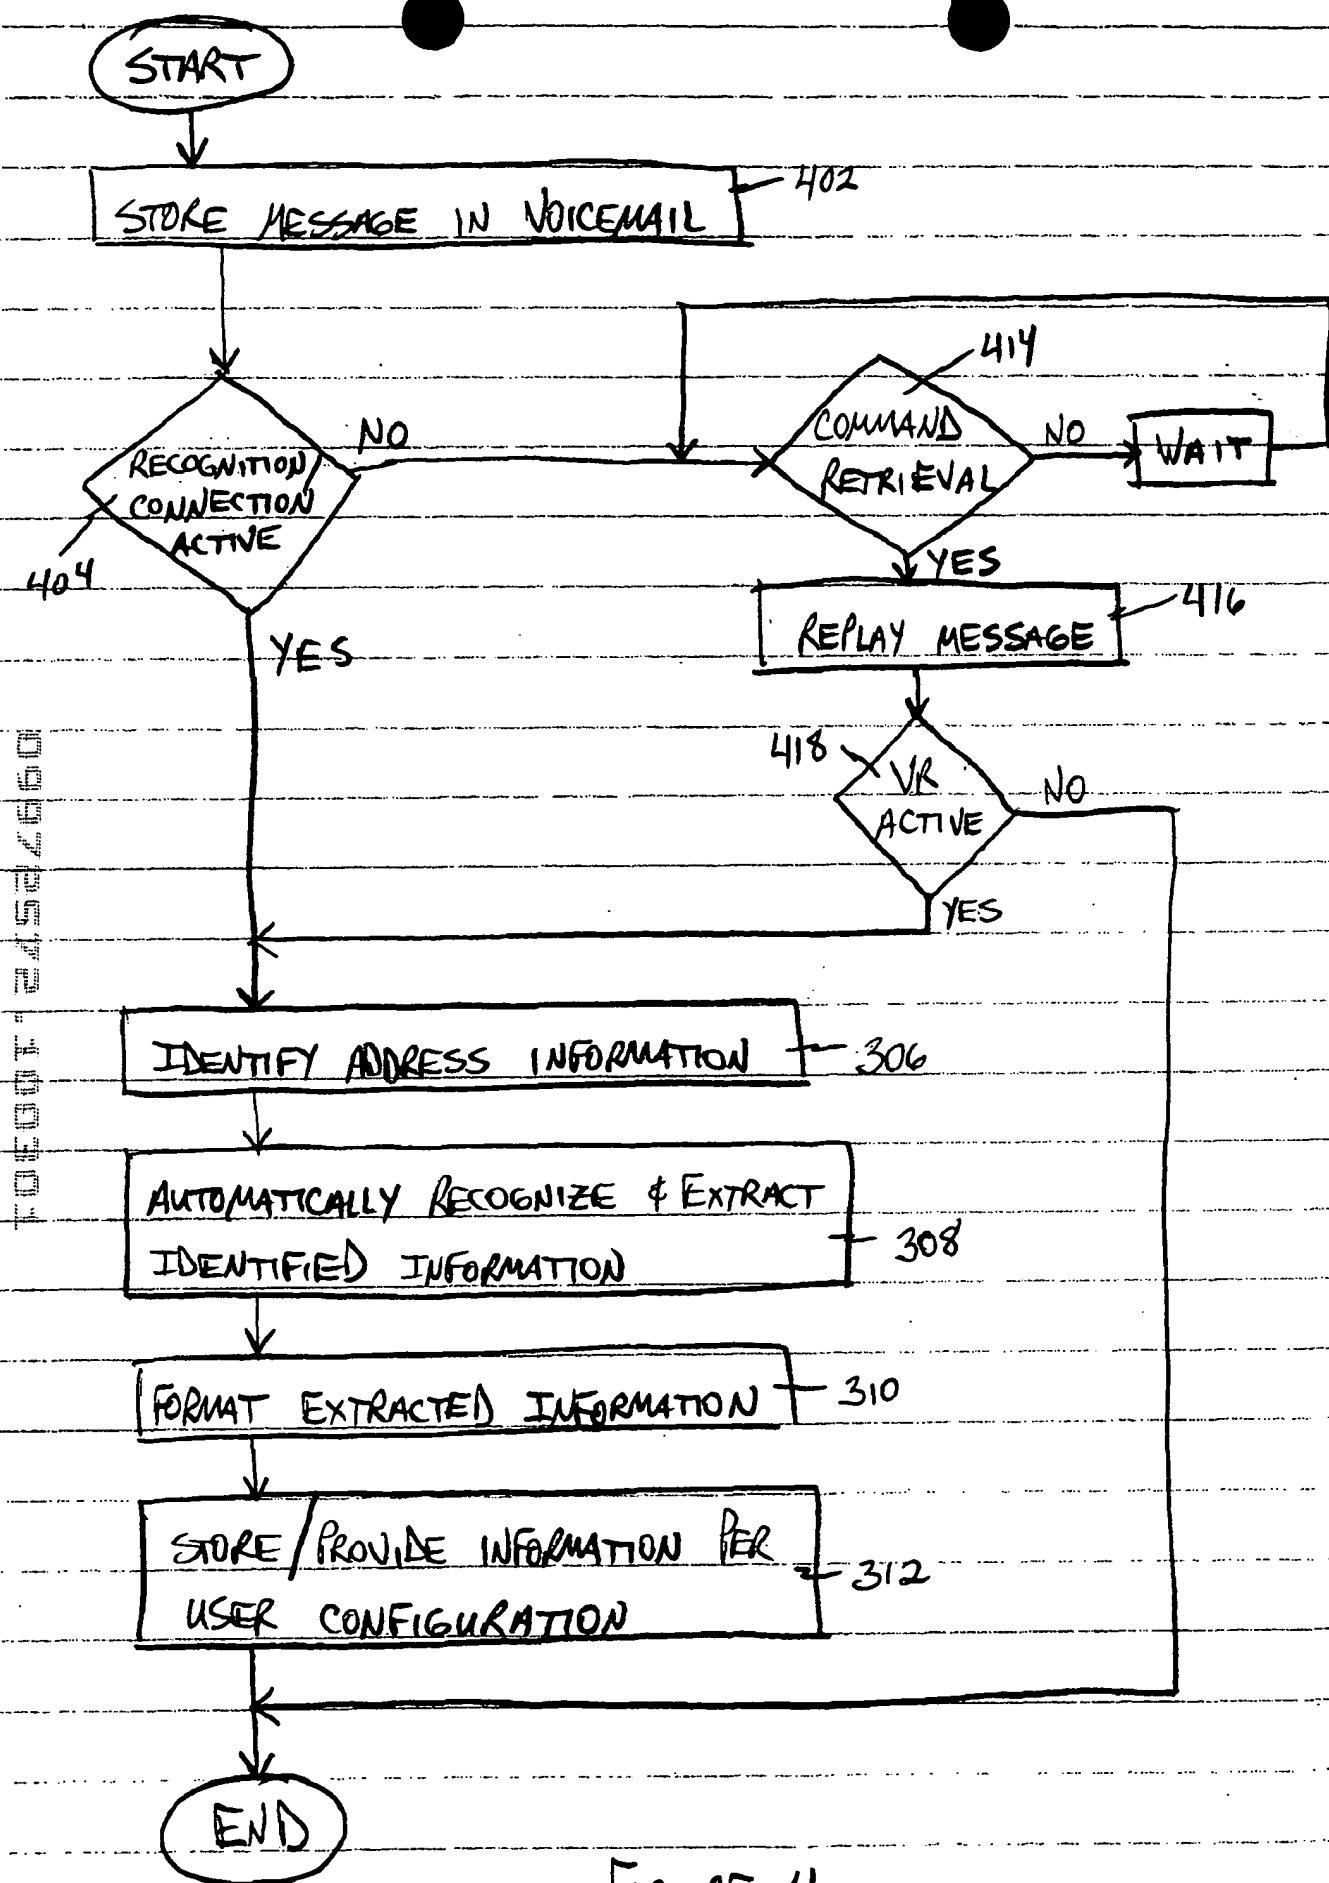 START
STORE MESSAGE IN VOICEMAIL
402
RECOGNITION
CONNECTION
ACTIVE
404
NO
YES
COMMAND
RETRIEVAL
414
NO
WAIT
YES
REPLAY MESSAGE
416
VR
ACTIVE
418
NO
YES
IDENTIFY ADDRESS INFORMATION
306
AUTOMATICALLY RECOGNIZE & EXTRACT
IDENTIFIED INFORMATION
308
FORMAT EXTRACTED INFORMATION
310
STORE/PROVIDE INFORMATION PER
USER CONFIGURATION
312
END